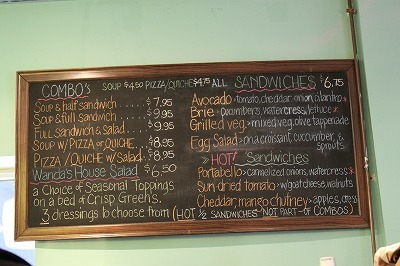 COMBO'S SOUP $4.50 PIZZA/QUICHE $4.75 ALL SANDWICHES $6.75
Soup & half sandwich..... $7.95
Soup & full sandwich..... $9.95
Full Sandwich & Salad.... $9.95
Soup w/ Pizza or Quiche.. $8.95
Pizza/Quiche w/ Salad.. $8.95
Wanda's House Salad $6.50
a Choice of Seasonal Toppings
on a bed of Crisp Greens.
3 dressings to choose from
Avocado - tomato, cheddar, onion, cilantro
Brie - cucumbers, watercress, lettuce
Grilled veg. - mixed veg, olive tappenade
Egg Salad - on a croissant, cucumber, & sprouts.
HOT! Sandwiches
Portabello - carmelized onions, watercress
Sun-dried tomato - w/ goat cheese, walnuts
Cheddar, mango chutney - apples, cress
(HOT 1/2 SANDWICHES NOT PART OF COMBOS)